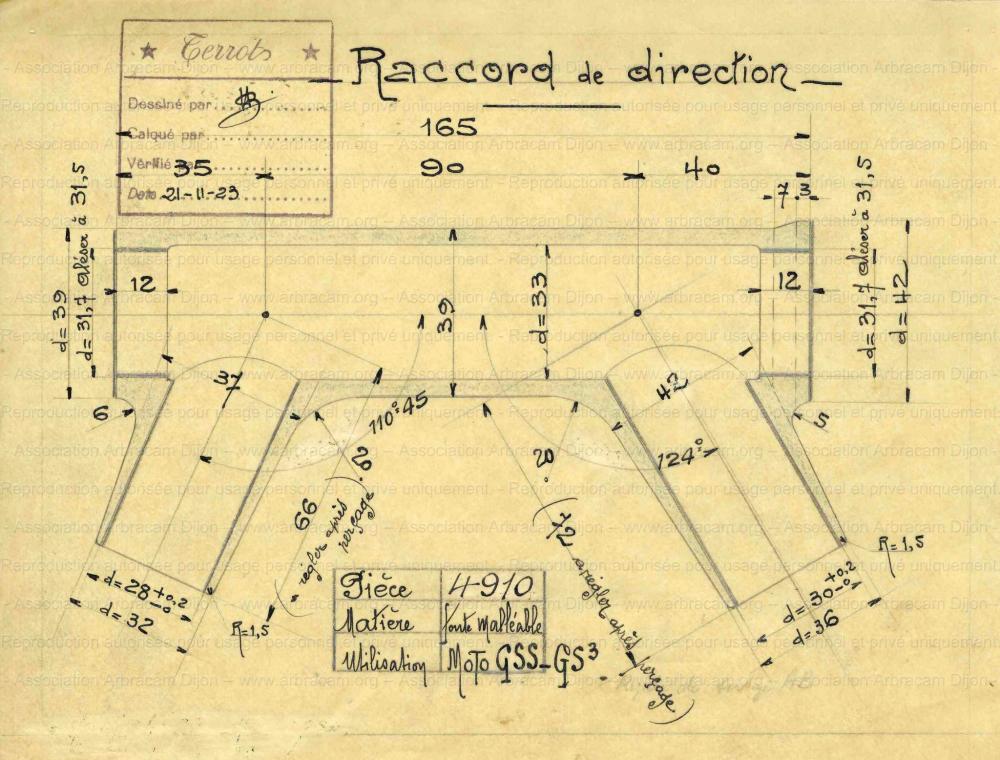 Terrots
Dessiné par
Calqué par
Vérifié par
Date 21-11-23
Raccord de direction
165
35 90 40
7 3
d= 39
d= 31,7 aléser à 31,5
12
39
d=33
12
d= 31,7 aléser à 31,5
d= 42
37
42
6
5
110° 45
124°
20
20
66
régler après perçage
72
(à régler après perçage)
R=1,5
R=1,5
d=28 +0,2 -0
d= 32
d= 30 +0,2
d= 36
Pièce 4-910
Matière fonte malléable
Utilisation Moto GSS-GS³
- Association Arbracam Dijon – www.arbracam.org – Association Arbracam Dijon – www.arbracam.org – Association Arbracam Dijon -
Reproduction autorisée pour usage personnel et privé uniquement. - Reproduction autorisée pour usage personnel et privé uniquement.